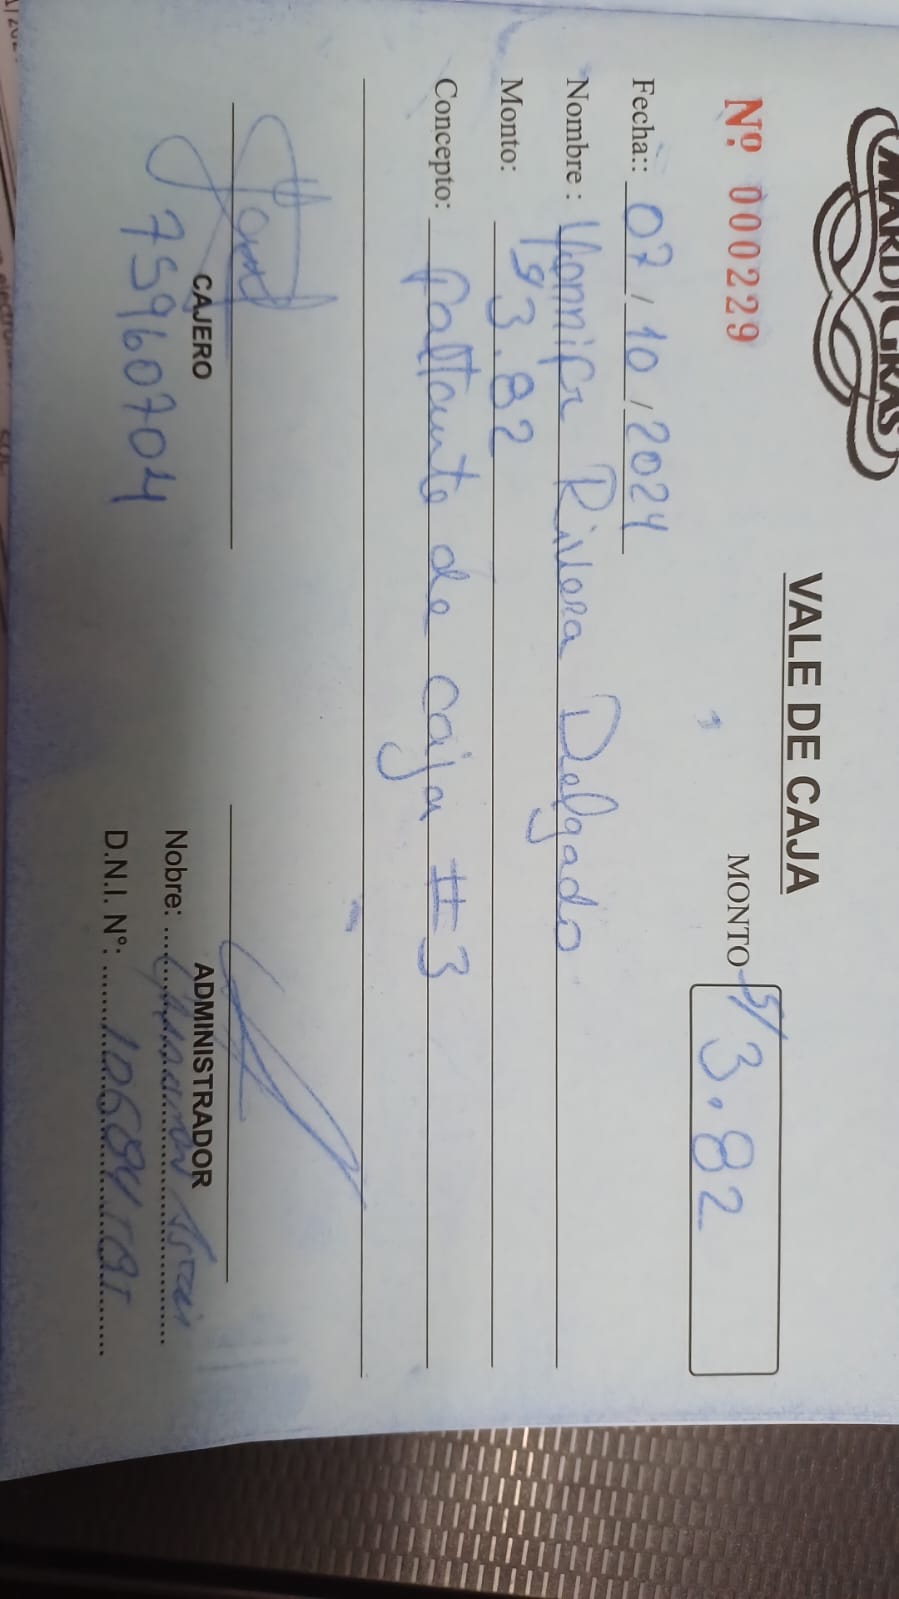 MARDIGRAS
VALE DE CAJA
Nº 000229
MONTO S/ 3.82
Fecha:: 07 / 10 / 2024
Nombre : Rivera Delgado
Monto: S/ 3.82
Concepto: faltante de caja #3
CAJERO
75960704
ADMINISTRADOR
Nobre:
D.N.I. Nº: